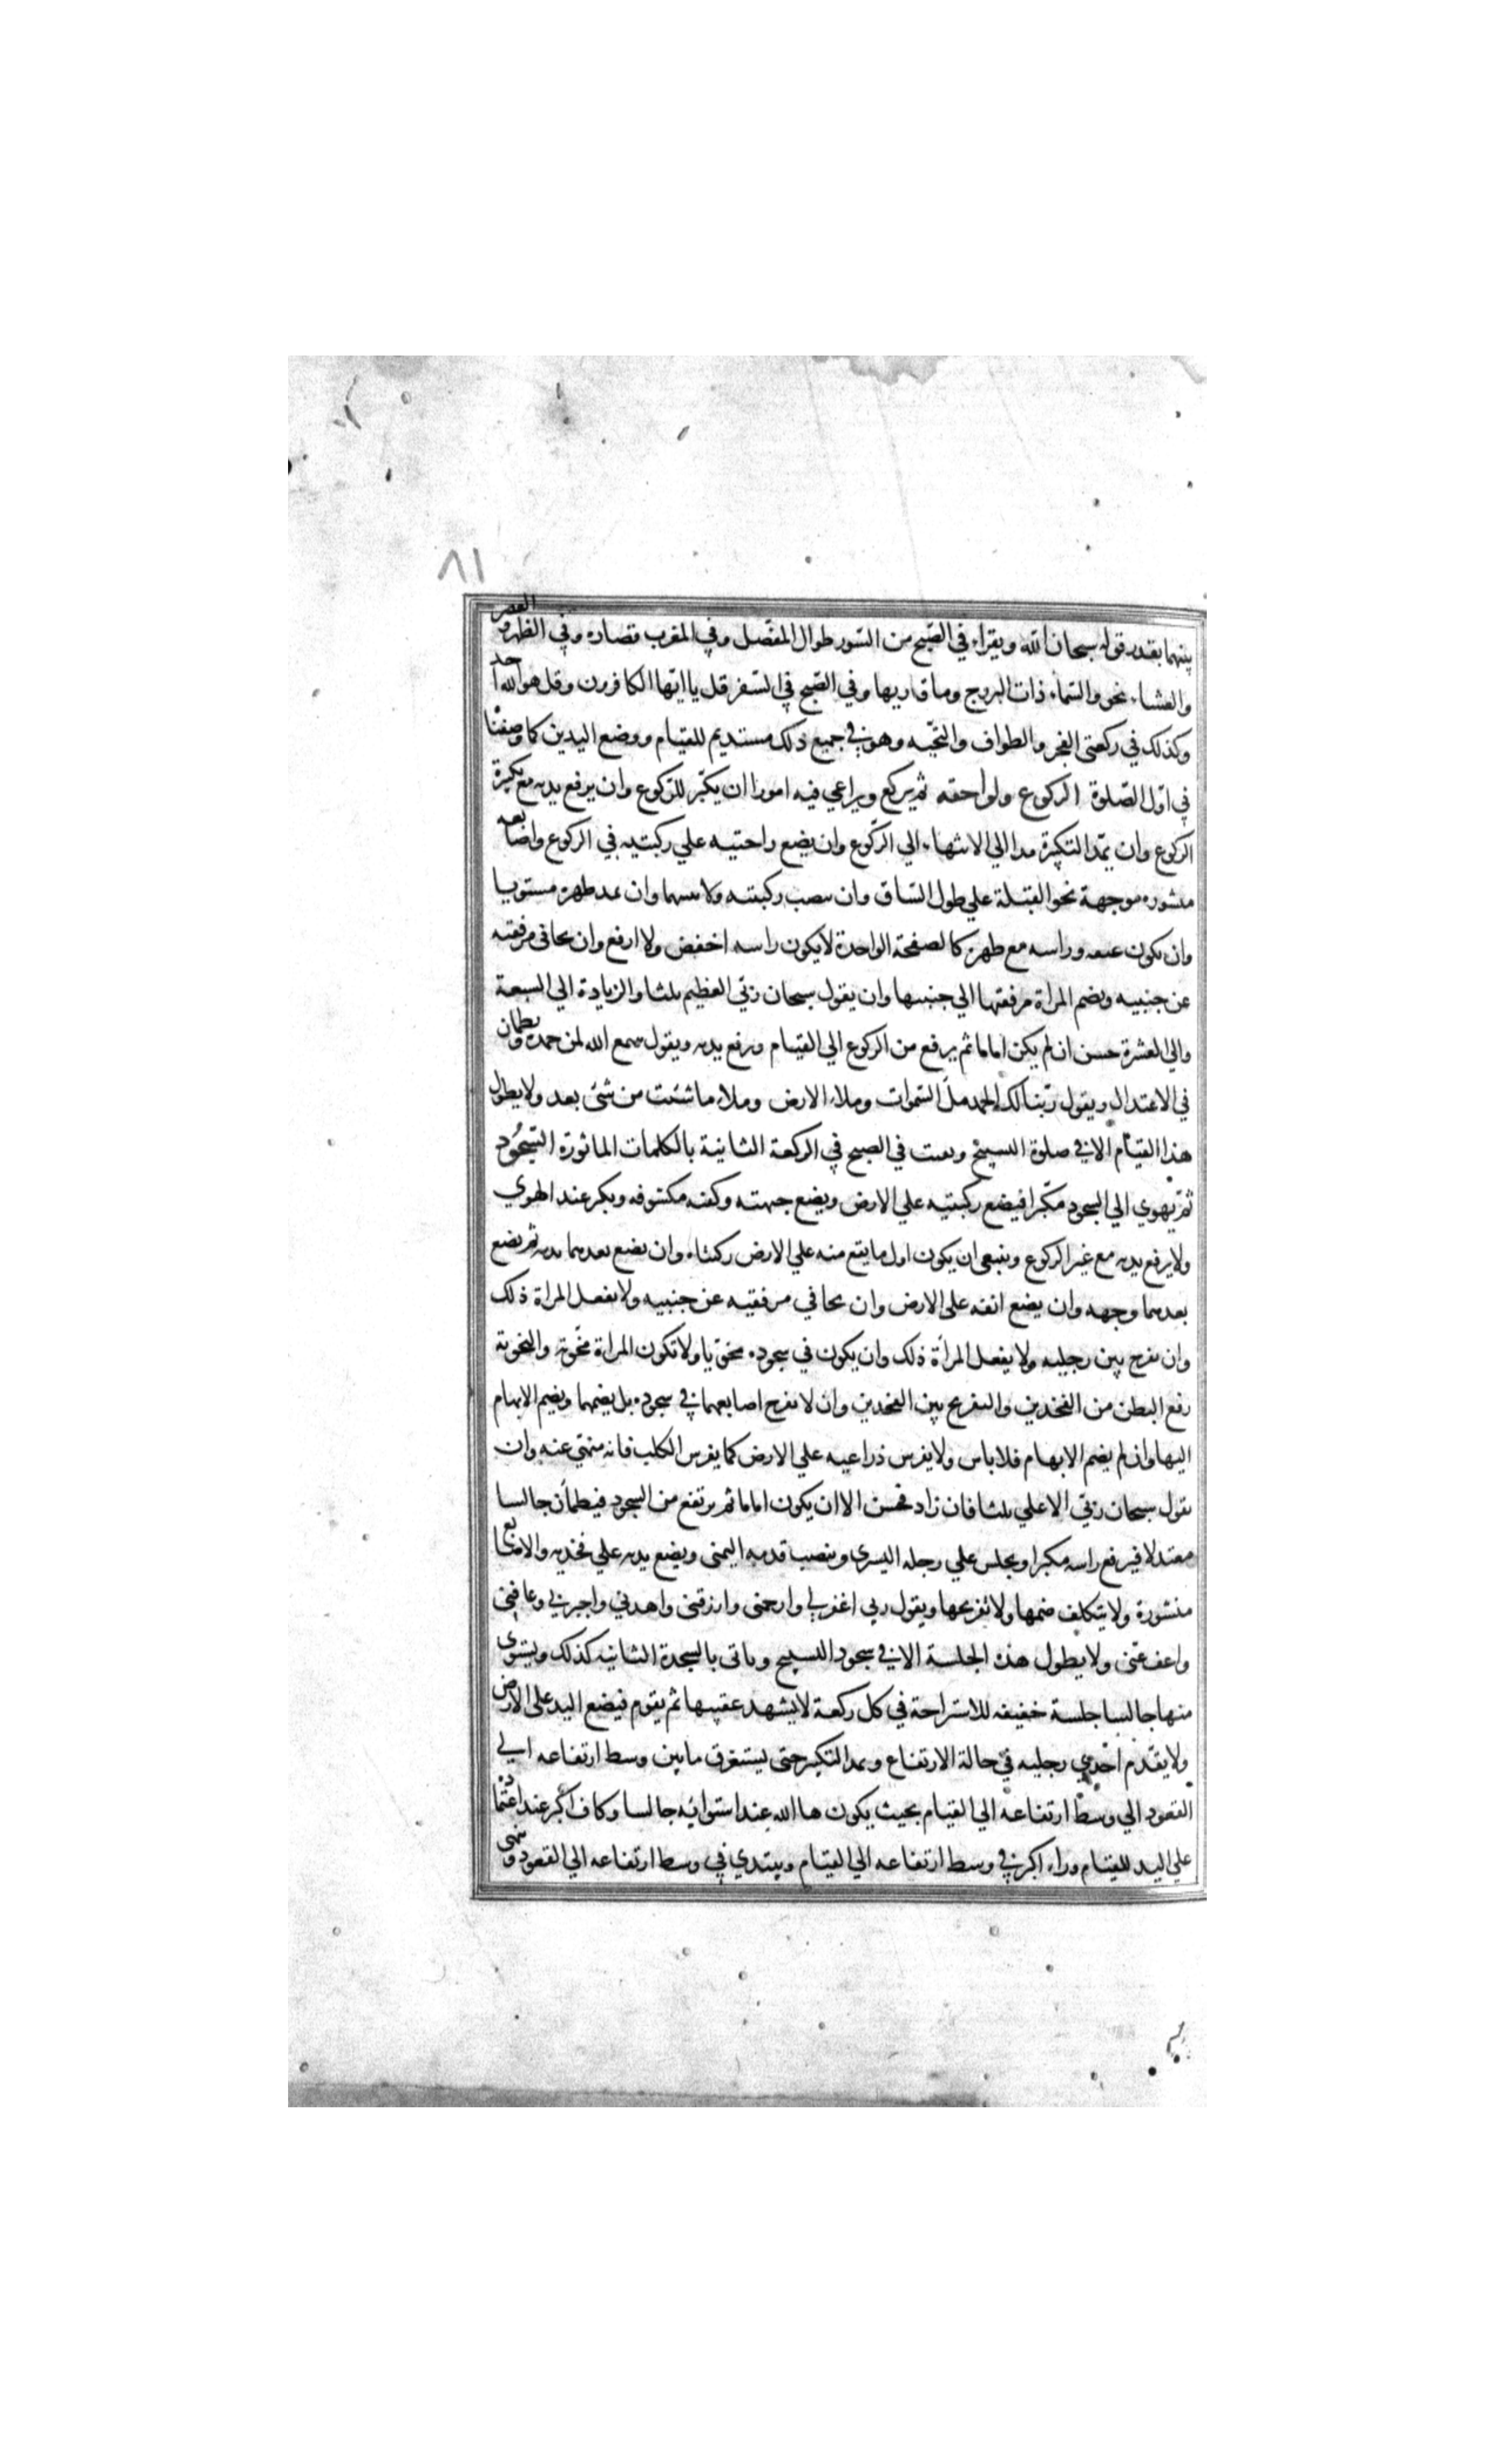 ٨١
بينهما بقدر قوله سبحان الله ويقراء في الصبح من السور طوال المفصل وفي المغرب قصاره وفي الظهر والعصر
والعشاء نحو والسماء ذات البروج وما قاربها وفي الصبح في السفر قل يا ايها الكافرون وقل هو الله احد
وكذلك في ركعتي الفجر والطواف والتحيه وهو في جميع ذلك مستديم للقيام ووضع اليدين كما وصفنا
في اول الصلوة الركوع ولواحقه ثم يركع ويراعي فيه امورا ان يكبر للركوع وان يرفع يديه مع تكبيرة
الركوع وان يمد التكبيرة مدا الي الانتهاء الي الركوع وان يضع راحتيه علي ركبتيه في الركوع واصابعه
منشوره موجهة نحو القبلة علي طول الساق وان ينصب ركبتيه ولا يثنيهما وان يمد ظهره مستويا
وان يكون عنقه وراسه مع ظهره كالصفحة الواحدة لا يكون راسه اخفض ولا ارفع وان يجافي مرفقيه
عن جنبيه وتضم المراة مرفقيها الي جنبيها وان يقول سبحان ربي العظيم ثلثا والزيادة الي السبعة
والي العشرة حسن ان لم يكن اماما ثم يرفع من الركوع الي القيام ويرفع يديه ويقول سمع الله لمن حمده ويطمان
في الاعتدال ويقول ربنا لك الحمد ملٔ السموات وملاء الارض وملاء ما شئت من شئ بعد ولا يطول
هذا القيام الا في صلوة التسبيح ويقنت في الصبح في الركعة الثانية بالكلمات الماثورة السجود
ثم يهوي الي السجود مكبرا فيضع ركبتيه علي الارض ويضع جبهته وكفيه مكشوفه ويكبر عند الهوي
ولا يرفع يديه مع غير الركوع وينبغي ان يكون اول ما يقع منه علي الارض ركبتاه وان يضع بعدهما يديه ثم يضع
بعدهما وجهه وان يضع انفه علي الارض وان يجافي مرفقيه عن جنبيه ولا تفعل المراة ذلك
وان يفرج بين رجليه ولا يفعل المراة ذلك وان يكون في سجوده مخويا ولا تكون المراة مخوية والتخوية
رفع البطن من الفخذين والتفريج بين الفخذين وان لا يفرج اصابعهما في سجوده بل يضمهما ويضم الابهام
اليها وان لم يضم الابهام فلا باس ولا يفرس ذراعيه علي الارض كما يفرس الكلب فانه منهي عنه وان
يقول سبحان ربي الاعلي ثلثا فان زاد فحسن الا ان يكون اماما ثم يرتفع من السجود فيطمأن جالسا
معتدلا فيرفع راسه مكبرا ويجلس علي رجله اليسري وينصب قدمه اليمنى ويضع يديه علي فخذيه والاصابع
منشورة ولا يتكلف ضمها ولا تفريجها ويقول ربي اغفر لي وارحمني وارزقني واهدني واجبرني وعافني
واعف عني ولا يطول هذه الجلسة الا في سجود التسبيح وياتي بالسجدة الثانيه كذلك ويستوي
منها جالسا جلسة خفيفه للاستراحة في كل ركعة لا يشهد عقيبها ثم يقوم فيضع اليد علي الارض
ولا يقدم احدي رجليه في حالة الارتفاع ويمد التكبير حتى يستغرق ما بين وسط ارتفاعه الي
القعود الي وسط ارتفاعه الي القيام بحيث يكون ها الله عند استوائه جالسا وكاف اكبر عند اعتماده
علي اليد للقيام وراء اكبر في وسط ارتفاعه الي القيام ويبتدي في وسط ارتفاعه الي القعود